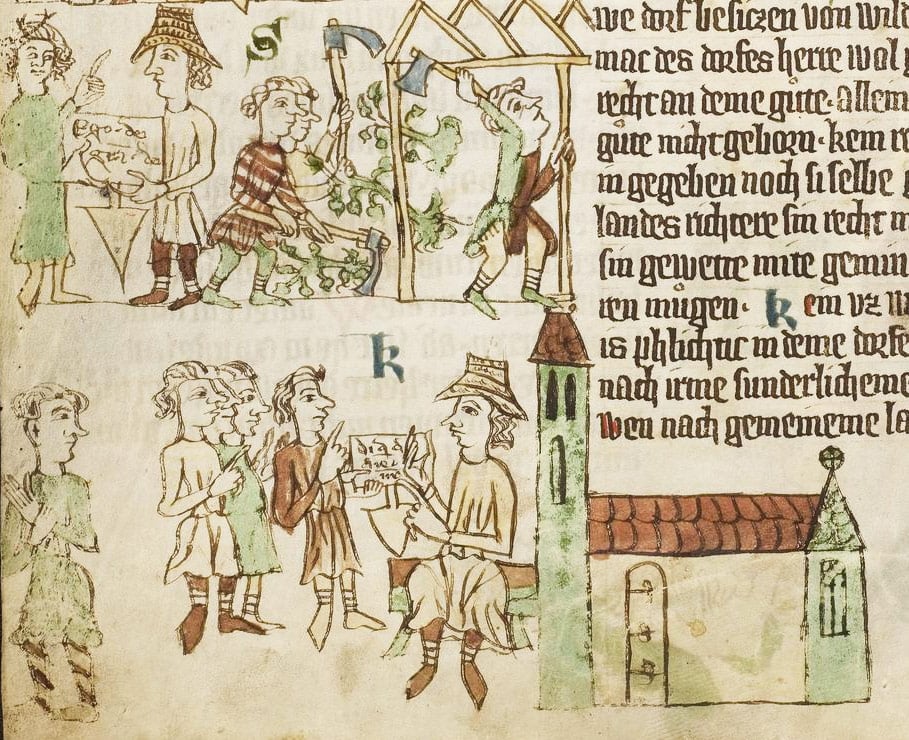 S
we dorf besiczen von wild
mac des dorfes herre wol
recht an deme gůte · allem
gůte nicht geborn · kein re
in gegeben noch si selbe
landes richtere sin recht
sin gewette mite gemin
ren můgen · k ein vz w
is phlichtic in deme dorfe
nach irme sunderlicheme
wen nach gemeineme la
k